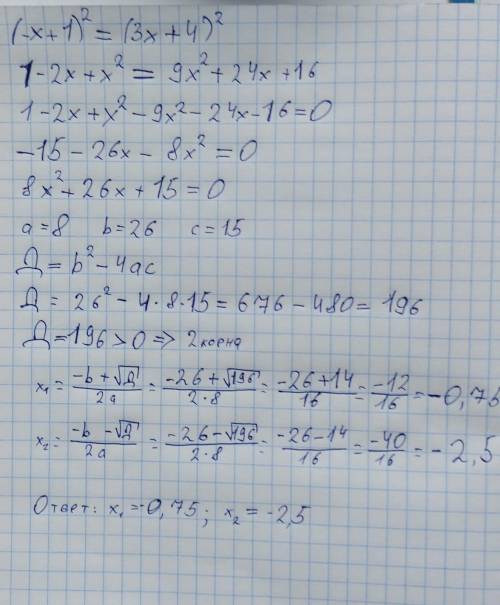 (-x+1)² = (3x+4)²
1-2x+x² = 9x²+24x+16
1-2x+x²-9x²-24x-16=0
-15-26x-8x²=0
8x²+26x+15=0
a=8 b=26 c=15
Д=b²-4ac
Д=26²-4·8·15=676-480=196
Д=196>0=>2корня
x₁=(-b+√Д)/2a=(-26+√196)/2·8=(-26+14)/16=-12/16=-0,75
x₂=(-b-√Д)/2a=(-26-√196)/2·8=(-26-14)/16=-40/16=-2,5
Ответ: x₁=-0,75; x₂=-2,5